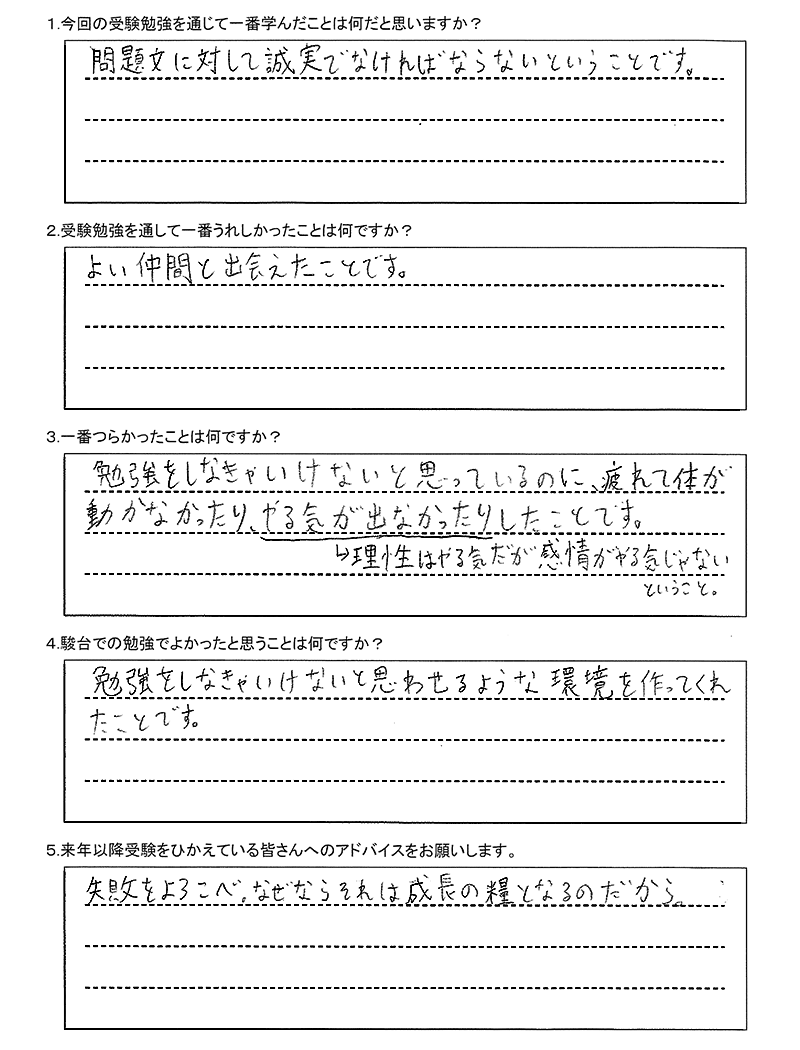 1.今回の受験勉強を通じて一番学んだことは何だと思いますか？
問題文に対して誠実でなければならないということです。
2.受験勉強を通して一番うれしかったことは何ですか？
よい仲間と出会えたことです。
3.一番つらかったことは何ですか？
勉強をしなきゃいけないと思っているのに、疲れて体が
動かなかったり、やる気が出なかったりしたことです。
↳理性はやる気だが感情がやる気じゃない
ということ。
4.駿台での勉強でよかったと思うことは何ですか？
勉強をしなきゃいけないと思わせるような環境を作ってくれ
たことです。
5.来年以降受験をひかえている皆さんへのアドバイスをお願いします。
失敗をよろこべ。なぜならそれは成長の糧となるのだから。